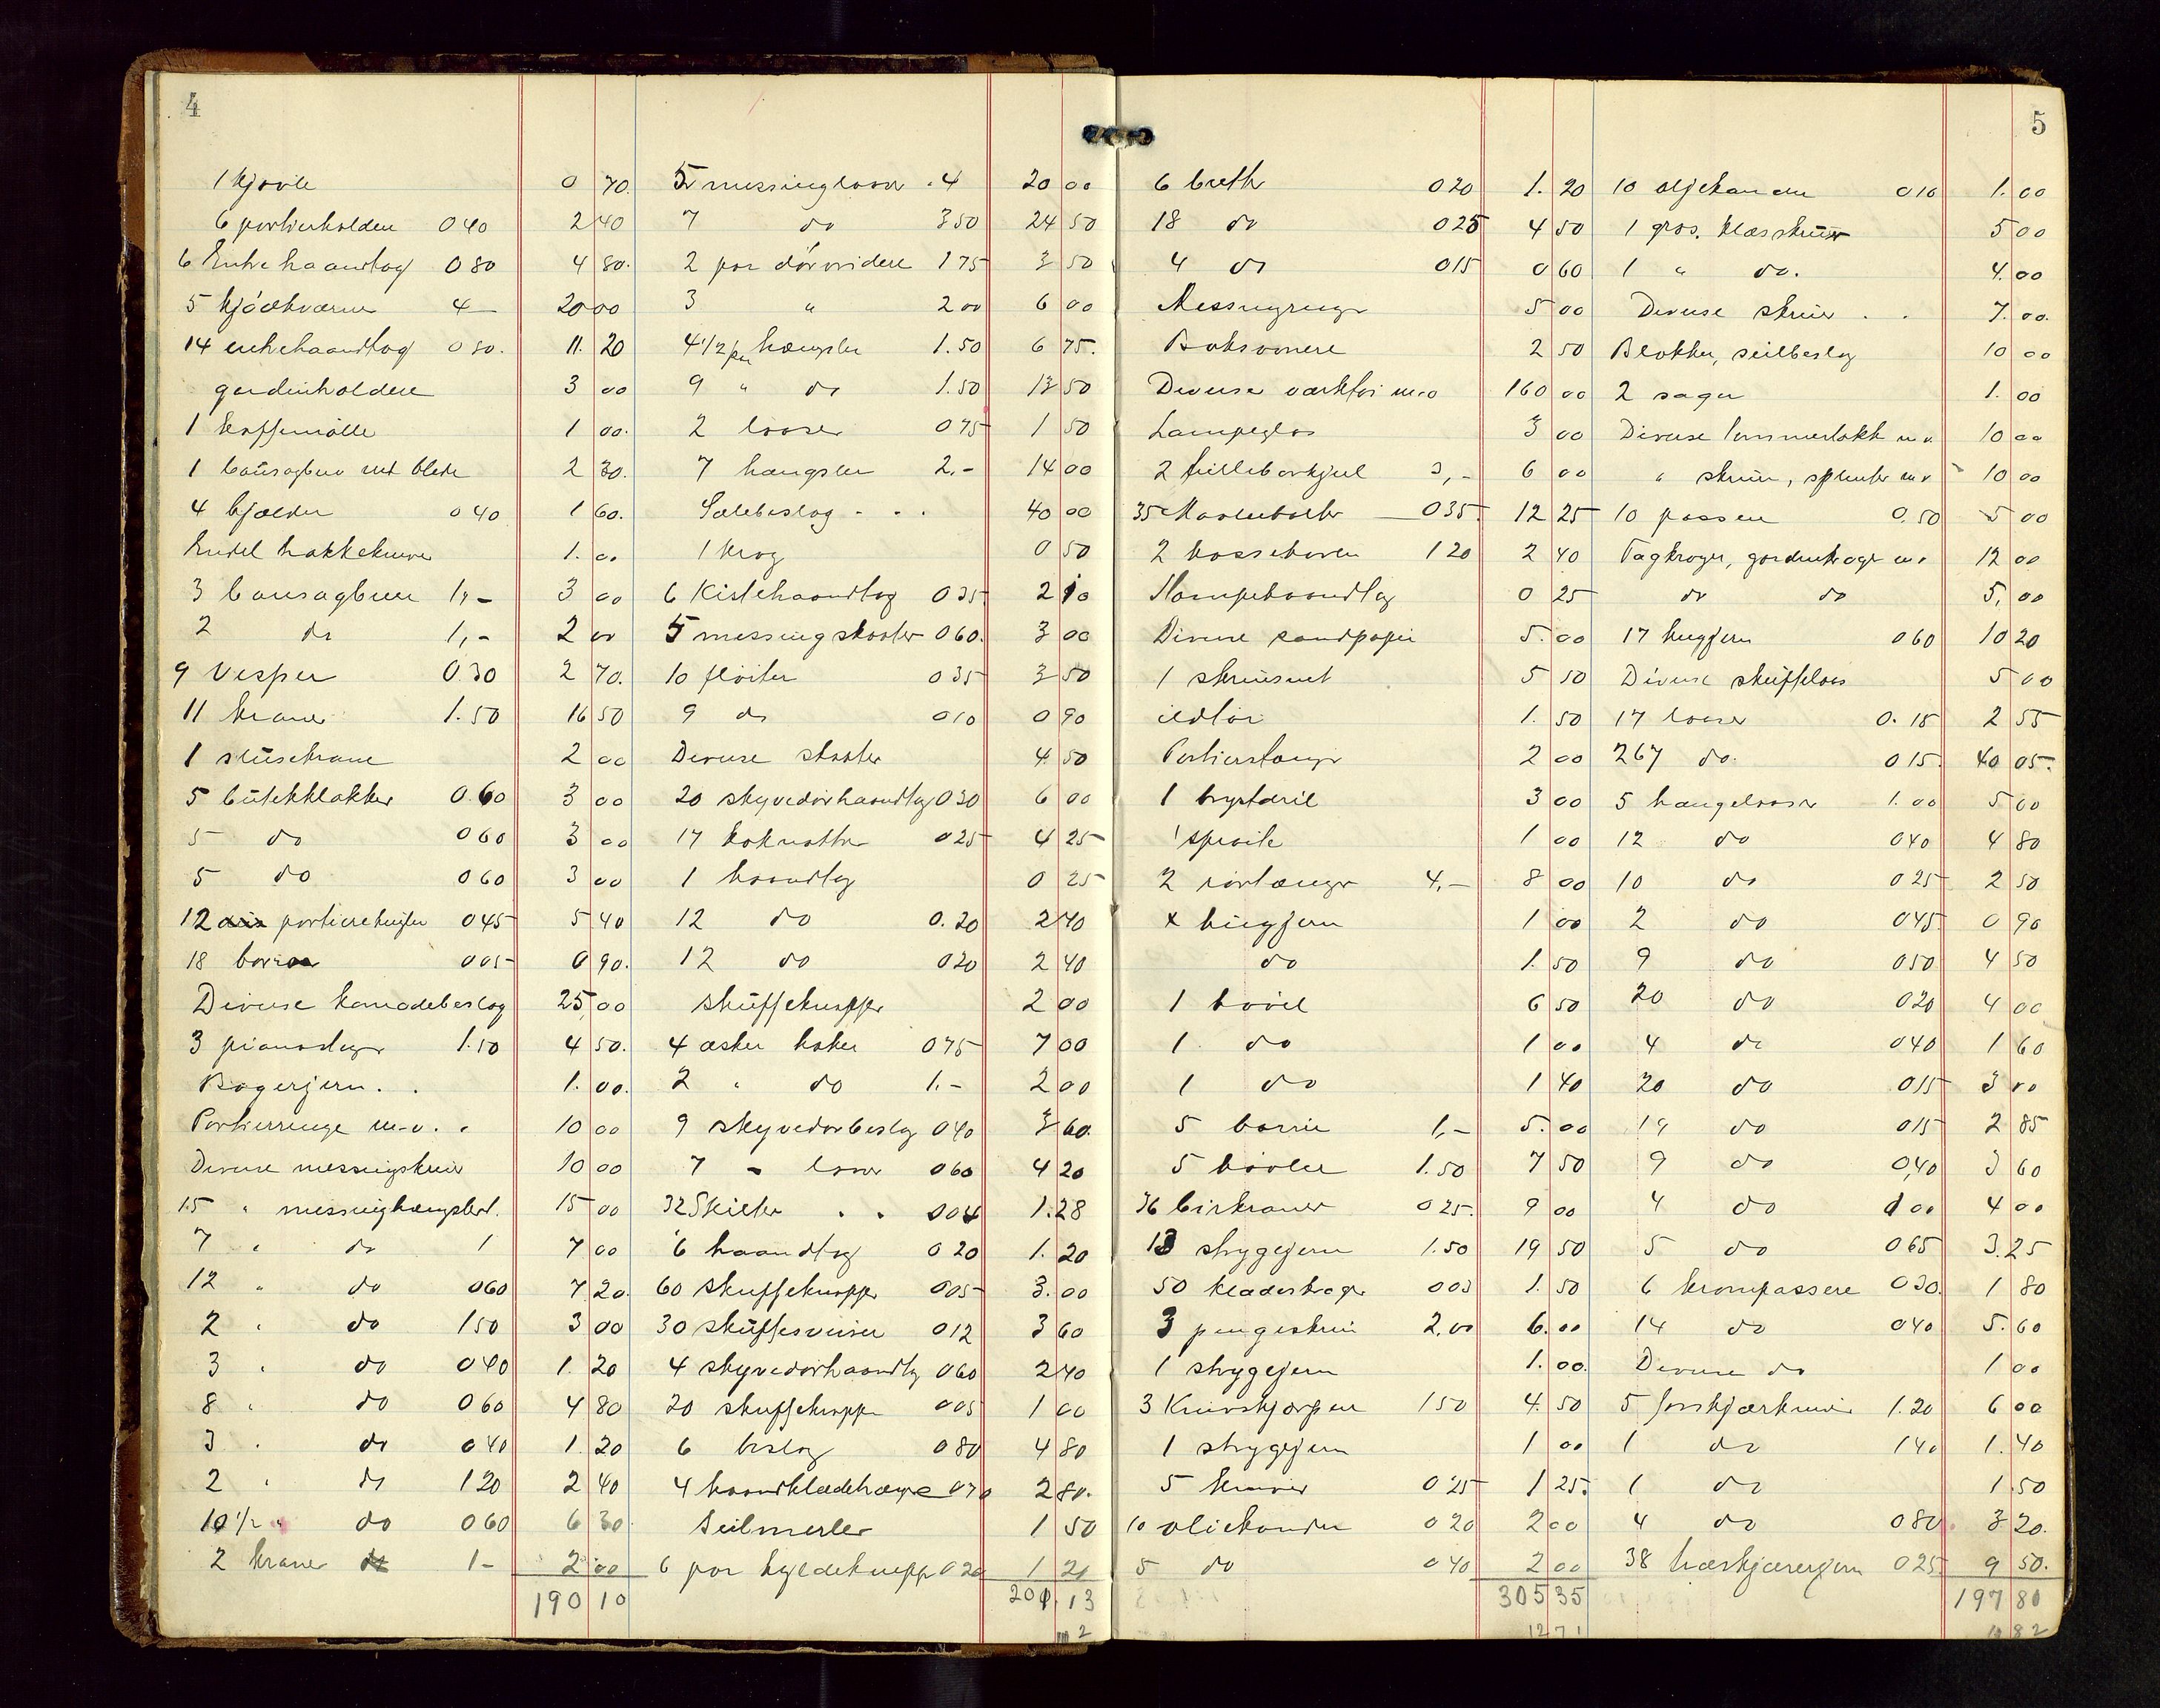 4
1 kjevle 0 70.
6 portierholdere 0 40 2 40
6 Entre haandtag 0 80 4 80.
5 kjödkværne 4 — 20 00
14 entrehaandtag 0 80. 11. 20
gardinholdere 3 00
1 kaffemölle 1 00.
1 bausagbue med blade 2 30.
4 bjælder 0 40 1 60.
Endel hakkeknive 1. 00
3 bausagbuer 1,- 3 00
2 do 1,- 2 00
9 Vesper 0.30 2 70.
11 kraner 1.50 16 50
1 slüsekrane 2 00
5 bütikklokker 0.60 3 00
5 do 0 60 3 00
5 do 0 60 3 00
12 portiereknifer 0 45 5 40
18 borer 0 05 0 90.
Diverse komodebeslag 25,00
3 pianoslag 1.50 4 50.
Bøgerjern . . 1. 00.
Portierringe m.v. . 10 00
Diverse messingskruer 10 00
15 " messinghængsler 1. 15 00
7 " do 1 7 00
12 " do 0 60 7 20.
2 " do 1 50 3 00
3 " do 0 40 1. 20
8 " do 0 60 4 80
3 " do 0 40 1. 20
2 " do 1 20 2 40
10 1/2 " do 0 60 6 30.
2 kraner 1- 2 00
190 10
5 messinglaaser . 4 20 00
7 do 3 50 24 50
2 par dörvridere 1 75 3 50
3 " 2 00 6 00
4 1/2 par hængsler 1.50 6 75.
9 " do 1.50 13 50
2 laaser 0 75 1 50
7 hængsler 2.- 14 00
Selebeslag . . . 40 00
1 krog 0 50
6 Kistehaandtag 0 35 2 10
5 messingskaater 0 60. 3 00
10 flöiter 0 35 3 50
9 do 0 10 0 90
Diverse skaater 4 50
20 skyvedörhaandtag 0 30 6 00
17 koknotter 0 25 4 25
1 haandtag 0 25
12 do 0.20 2 40
12 do 0 20 2 40
Sküffeknapper 2 00
4 æsker haker 0 75 7 00
2 " do 1.- 2 00
9 skyvedørbeslag 0 40 3 60.
7 - laaser 0 60 4 20
32 Skilter . . 0 04 1. 28
6 haandtag 0 20 1. 20
60 Skuffeknapper 0 05 3. 00
30 Sküffesviser 0 12 3 60
4 skyvedørhaandtag 0 60 2 40
20 skuffeknapper 0 05 1 00
6 beslag 0 80 4 80
4 haandklædehænger 0 70 2 80.
Seilmerler 1 50
6 par hyldeknegter 0 20 1 20
201. 13
2
5
6 bretter 0 20 1. 20
18 do 0 25 4 50
4 do 0 15 0 60
Messingringer 5 00
Boksvonere 2 50
Diverse værktøi m.v 160 00
Lampeglas 3 00
2 3,- 6 00
35 Maskebolter 0 35. 12 25
2 kasseboren 1 20 2 40
Kampehaandtag 0 25
Diverse sandpapir 5. 00
1 skruesnet 5 50
ildtöi 1. 50
Portierstanger 2 00
1 brystdril 3 00
1 sprøite 1 00
2 rørtænger 4,- 8 00
x hügjern 1 00
do 1. 50
1 høvel 6 50
1 do 1 00
1 do 1 40
5 borrer 1,- 5. 00
5 høvler 1.50 7 50
36 birkraner 0 25. 9 00
13 strygejern 1.50 19 50
50 klædeskroger 0 03 1. 50
3 pengeskrin 2,00 6. 00
1 strygejern 1. 00.
3 Knivskjærpere 1 50 4. 50
1 strygejern 1 00
5 kniver 0 25 1 25.
10 oliekander 0 20 2 00
5 do 0 40 2 00
305 35
12 71
10 oljekander 0 10 1. 00
1 gros. klæsskruer 5 00
1 " do. 4. 00
Diverse skruer . . 7. 00.
Blokker, seilbeslag 10 00
2 sager 1. 00
Diverse lommerlokk m.v. 10 00
" skruer, splinter m.v 10 00
10 passere 0.50 5 00
Tagkroger, gardinkroge m.v 12 00
do do 5, 00
17 hugjern 0 60 10 20
Diverse sküffelaas 5 00
17 laaser 0. 15 2 55
267 do. 0 15. 40 05.
5 hængelaase 1. 00 5 00
12 do 0 40 4 80
10 do 0 25 2 50
2 do 0 45. 0 90
9 do 0 50 4 50
20 do 0 20 4 00
4 do 0 40 1 60
20 do 0 15 3 00
19 do 0 15 2 85
9 do 0,40 3 60
4 do 1 00 4 00
5 do 0 65 3. 25
6 krompassere 0 30. 1 80
14 do 0 40 5. 60
Diverse do 1 00
5 forskjærkniver 1.20 6 00
1 do 1 40 1. 40
1 do 1 50
4 do 0 80. 3 20.
38 hæskjærerjern 0 25. 9 50.
197 80
82